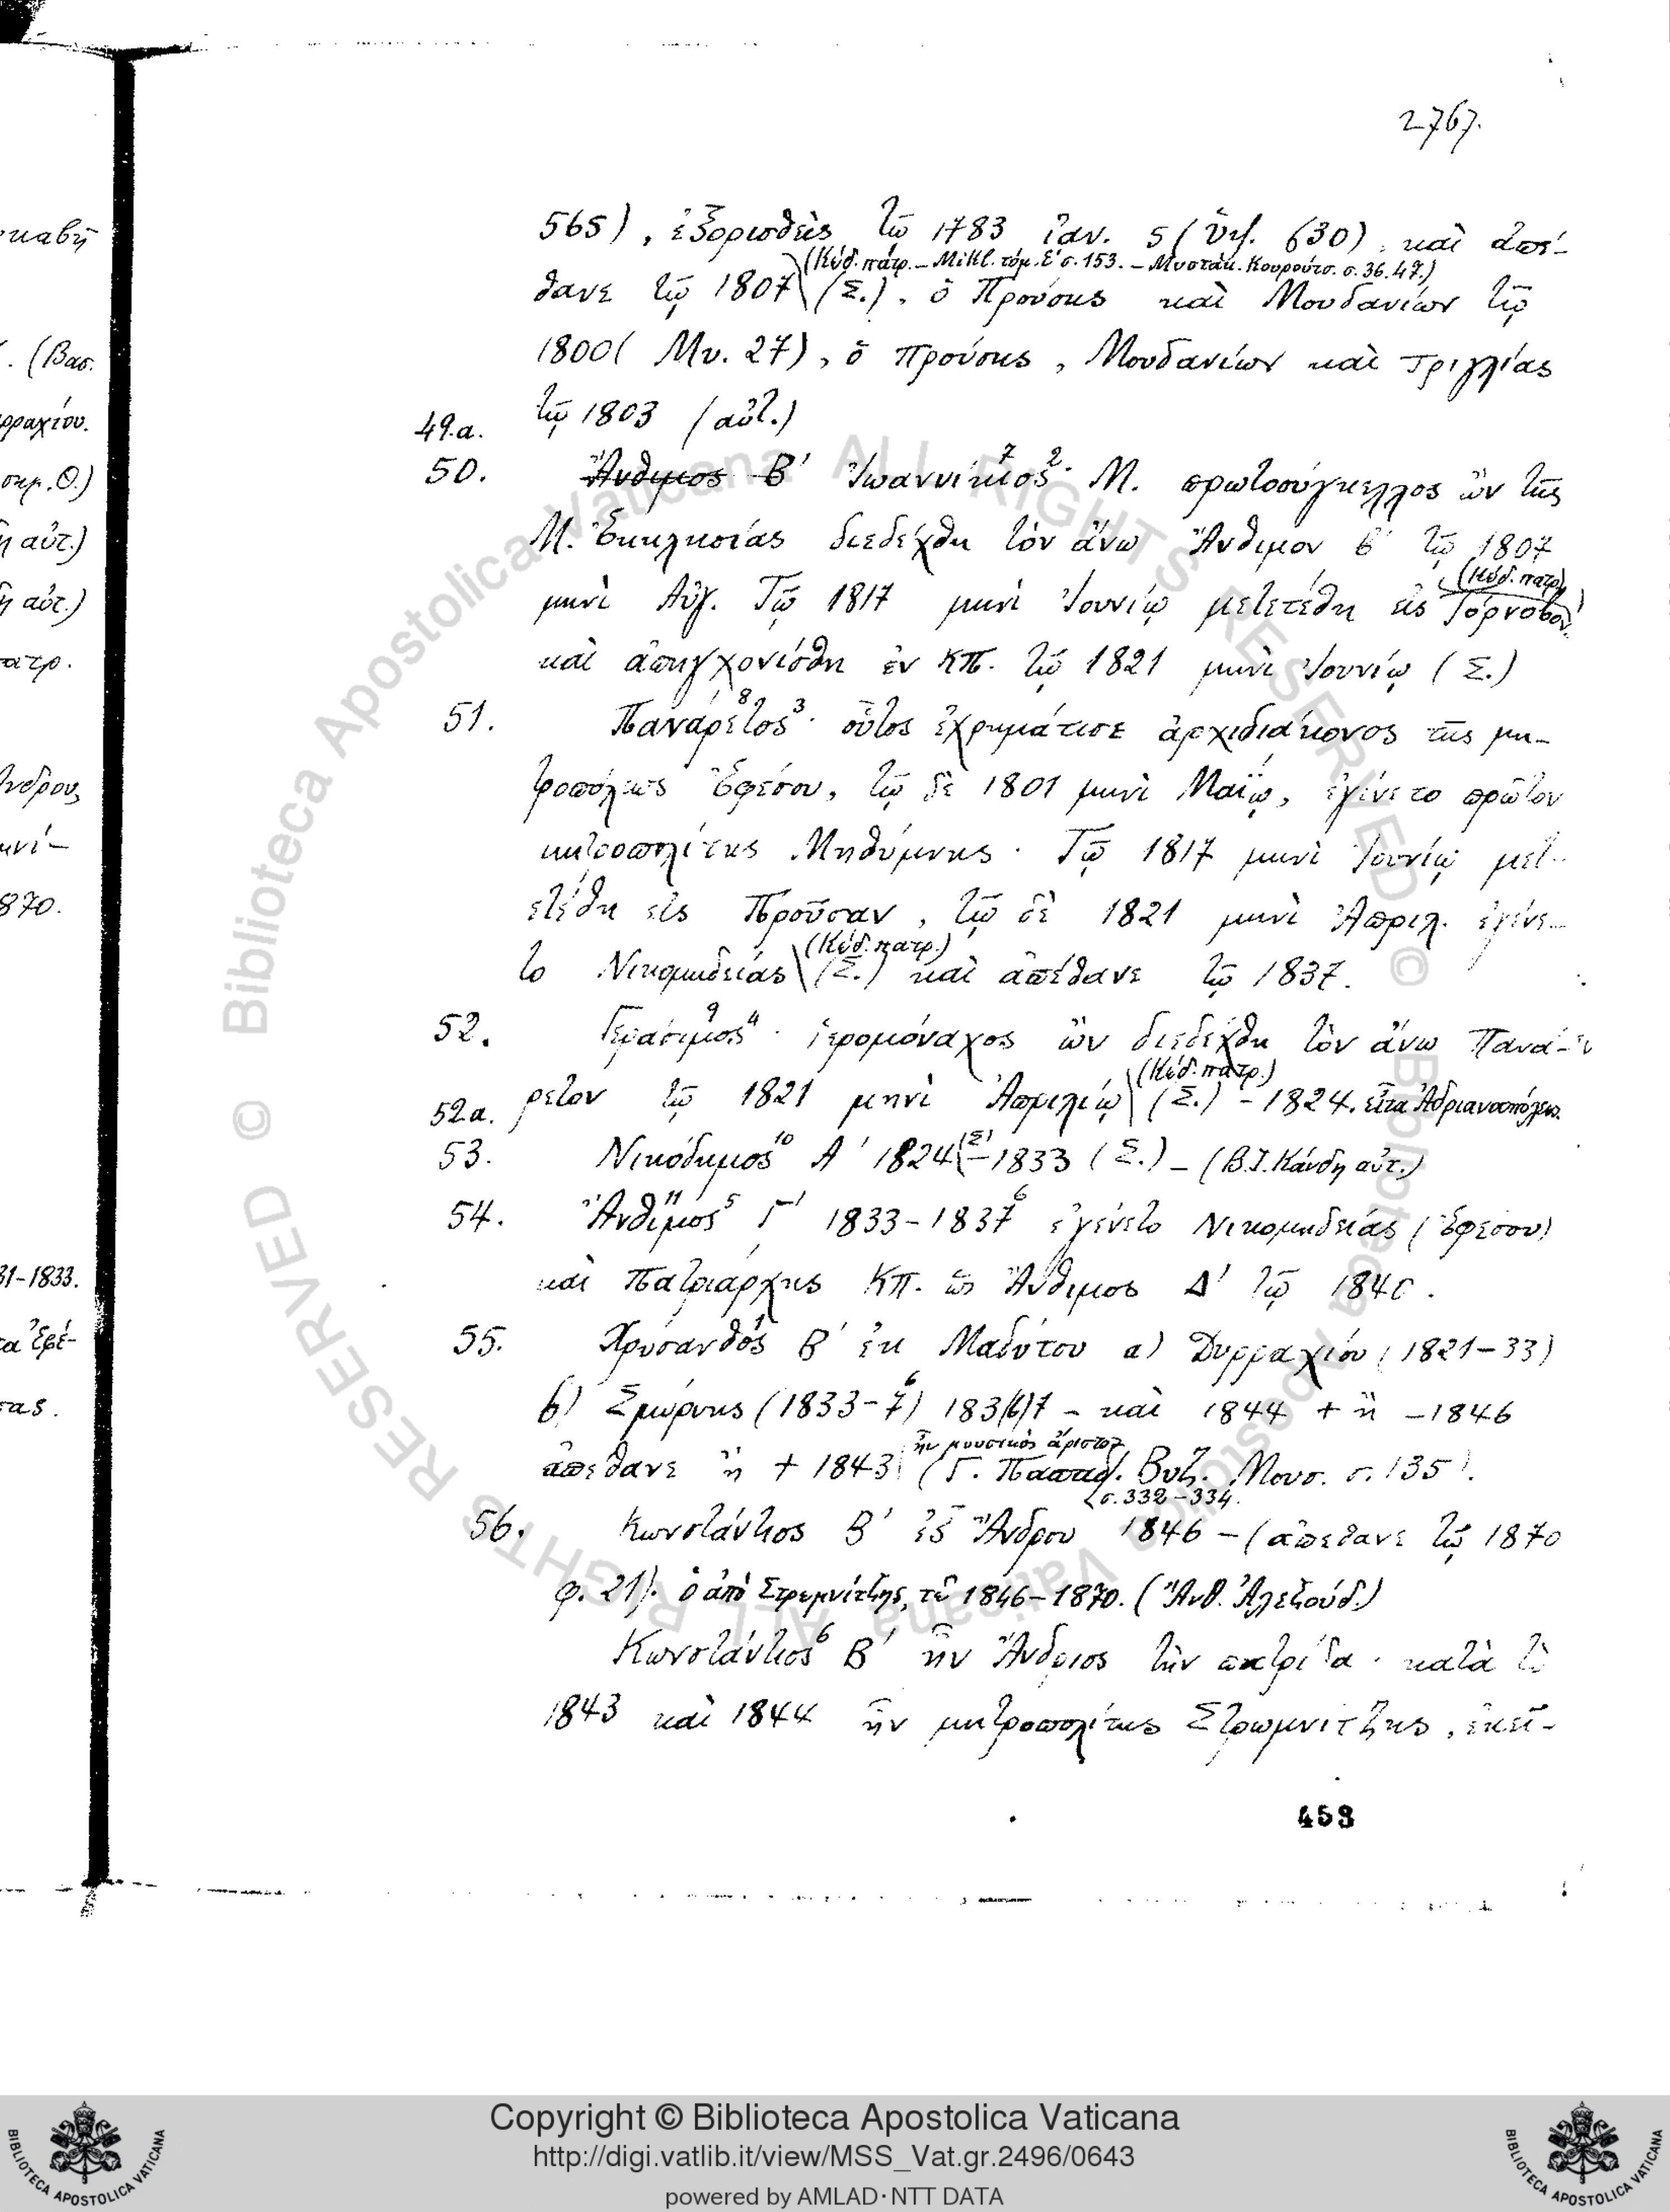 2767.
565), ἐξορισθεὶς τῷ 1783 ἰαν. 5 (Ὑψ. 630) καὶ ἀπέ-
(Κώδ. πάτρ. – Mikl. τόμ. Ε' σ. 153. – Μυστάκ. Κουρούτσ. σ. 36. 47.)
θανε τῷ 1807 (Σ.), ὁ Προύσης καὶ Μουδανίων τῷ
1800 ( Μυ. 27), ὁ Προύσης, Μουδανίων καὶ Τριγλίας
49.α. τῷ 1803 (αὐτ.)
50. Ἄνθιμος Β' Ἰωαννίκιος 7 2. Μ. πρωτοσύγκελλος ὢν τῆς
Μ. Ἐκκλησίας διεδέχθη τὸν ἄνω Ἄνθιμον Β' τῷ 1807
(Κώδ. πατρ.)
μηνὶ Αὐγ. Τῷ 1817 μηνὶ Ἰουνίῳ μετετέθη εἰς Τόρνοβον
καὶ ἀπηγχονίσθη ἐν ΚΠ. τῷ 1821 μηνὶ Ἰουνίῳ (Σ.)
51. Πανάρετος 8 3. οὗτος ἐχρημάτισε ἀρχιδιάκονος τῆς μη-
τροπόλεως Ἐφέσου, τῷ δὲ 1801 μηνὶ Μαΐῳ, ἐγίνετο πρῶτον
μητροπολίτης Μηθύμνης. Τῷ 1817 μηνὶ Ἰουνίῳ μετ-
ετέθη εἰς Προῦσαν, τῷ δὲ 1821 μηνὶ Ἀπριλ. ἐγίνε-
(Κώδ. πατρ.)
το Νικομηδείας (Σ.) καὶ ἀπέθανε τῷ 1837.
52. Γεράσιμος 9 4. ἱερομόναχος ὢν διεδέχθη τὸν ἄνω Πανά-
(Κώδ. πατρ.)
52α. ρετον τῷ 1821 μηνὶ Ἀπριλίῳ (Σ.) – 1824. εἶτα Ἀδριανουπόλεως.
53. Νικόδημος 10 Α' 1824 (Σ) – 1833 (Σ.) – (Β.Ι. Κάνδη αὐτ.)
54. Ἄνθιμος 11 5 Γ' 1833-1837 6 ἐγένετο Νικομηδείας (Ἐφέσου)
καὶ Πατριάρχης ΚΠ. ὡς Ἄνθιμος Δ' τῷ 1840.
55. Χρύσανθος Β' ἐκ Μαδύτου α) Δυρραχίου (1821-33)
β) Σμύρνης (1833-7) 6 183(6)7 – καὶ 1844 + ἢ – 1846
ἦν μουσικὸς ἄριστος
ἀπέθανε ἢ + 1843 (Γ. Παπαδ. Βυζ. Μουσ. σ. 135).
σ. 332-334.
56. Κωνστάντιος Β' ἐξ Ἄνδρου 1846 – (ἀπέθανε τῷ 1870
φ. 21). ὁ ἀπὸ Στρωμνίτζης, τῷ 1846-1870. (Ἀνθ. Ἀλεξούδ.)
Κωνστάντιος 6 Β' ἦν Ἄνδριος τὴν πατρίδα. κατὰ τὸ
1843 καὶ 1844 ἦν μητροπολίτης Στρωμνίτζης, ἐκεῖ-
458
καβῆ
. (Βασ.
ρραχίου.
σημ. Θ.)
η αὐτ.)
η αὐτ.)
ατρ.
Ἄνδρου,
μνί-
870.
31-1833.
τα Ἐφέ-
τας.
© Biblioteca Apostolica Vaticana ALL RIGHTS RESERVED © Biblioteca Apostolica Vaticana ALL RIGHTS RESERVED
Copyright © Biblioteca Apostolica Vaticana
http://digi.vatlib.it/view/MSS_Vat.gr.2496/0643
powered by AMLAD·NTT DATA
BIBLIOTECA APOSTOLICA VATICANA
BIBLIOTECA APOSTOLICA VATICANA